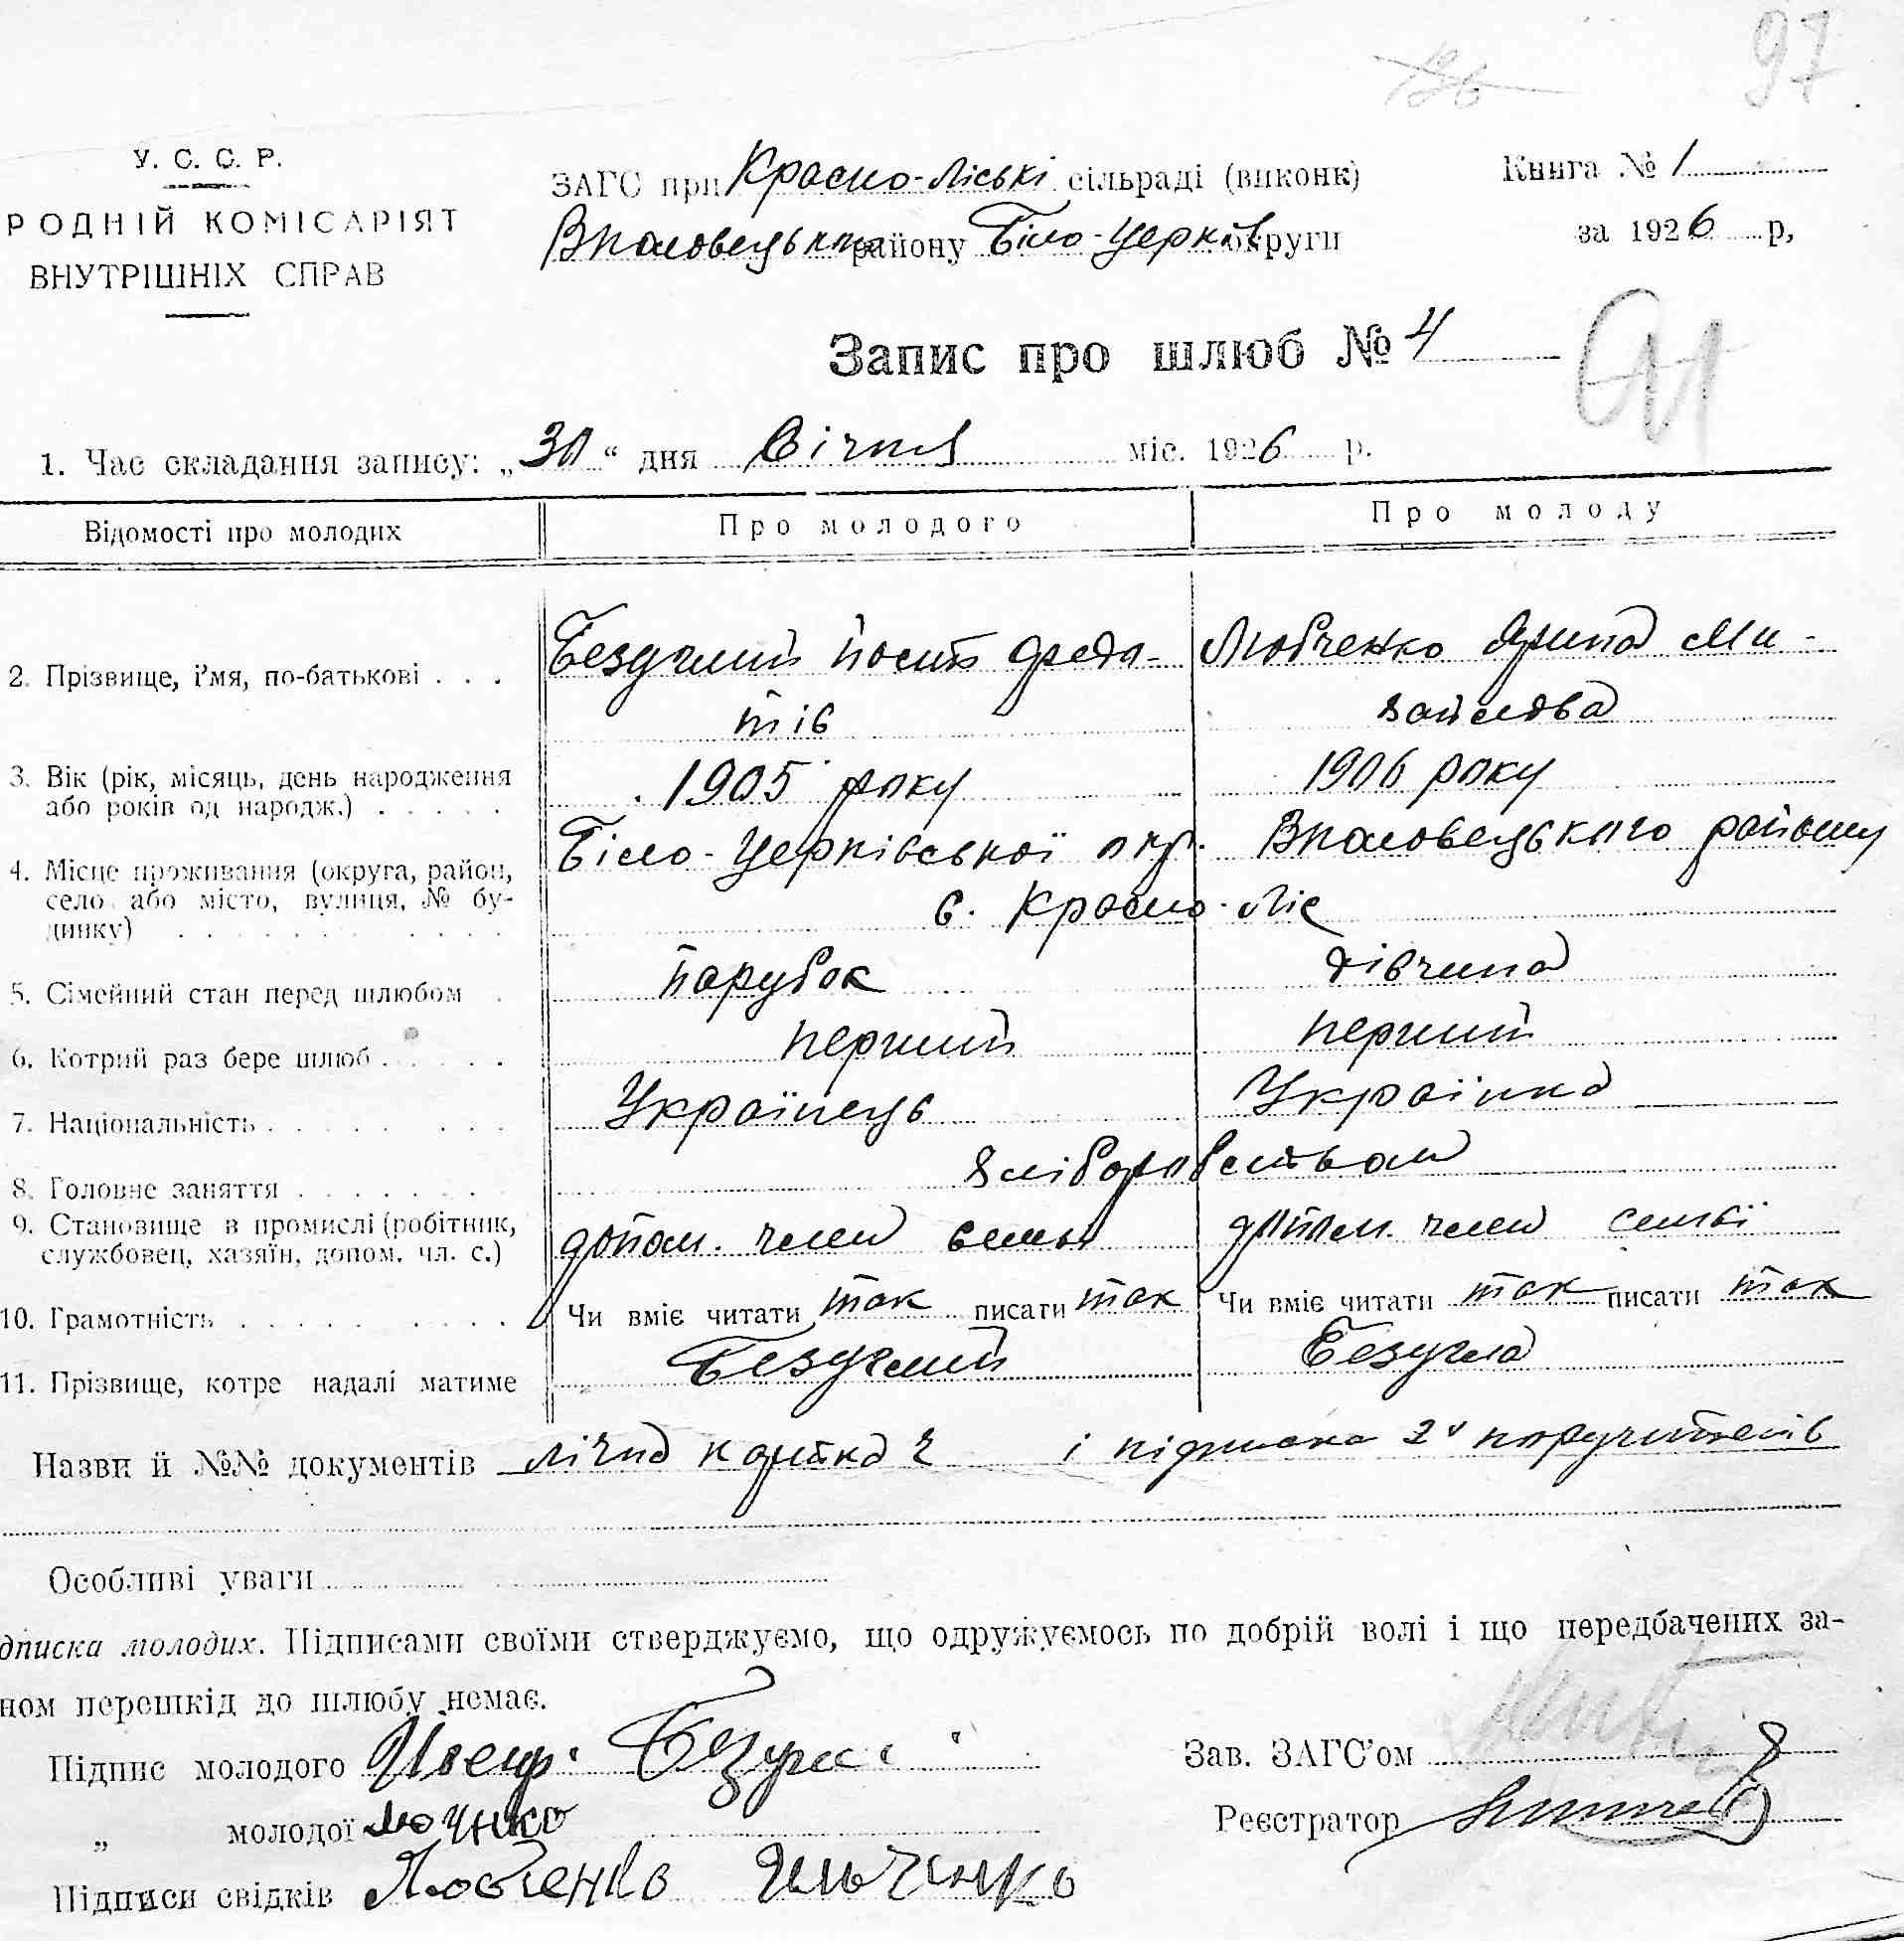 97
У. С. С. Р.
РОДНІЙ КОМІСАРІЯТ
ВНУТРІШНІХ СПРАВ
ЗАГС при Красно-Ліські сільраді (виконк)
району Біло-Церків округи
Книга № 1
за 1926 р,
Запис про шлюб № 4
91
1. Час складання запису: „30“ дня Січня міс. 1926 р.
Відомості про молодих
Про молодого
Про молоду
2. Прізвище, і'мя, по-батькові . . .
Безуглий Йосип Федо-
тів
Любченко Ярина Ми-
хайлова
3. Вік (рік, місяць, день народження
або років од народж.) . . . . .
1905 року
1906 року
4. Місце проживання (округа, район,
село або місто, вулиця, № бу-
динку) . . . . . . .
Біло-Церківської окр. району
с. Красно-Ліс
5. Сімейний стан перед шлюбом .
парубок
дівчина
6. Котрий раз бере шлюб . . . . .
перший
перший
7. Національність . . . . . . . .
Українець
Українка
8. Головне заняття . . . . . . .
хліборобством
9. Становище в промислі (робітник,
службовец, хазяїн, допом. чл. с.)
допом. член семьи
допом. член семьї
10. Грамотність . . . . . . . . .
Чи вміє читати так писати так
Чи вміє читати так писати так
11. Прізвище, котре надалі матиме
Безуглий
Безугла
Назви й №№ документів лічна картка і підписка 2х поручителів
Особливі уваги
дписка молодих. Підписами своїми стверджуємо, що одружуємось по добрій волі і що передбачених за-
ном перешкід до шлюбу немає.
Підпис молодого
„ молодої
Підписи свідків Любченко Ильченко
Зав. ЗАГС'ом
Реєстратор